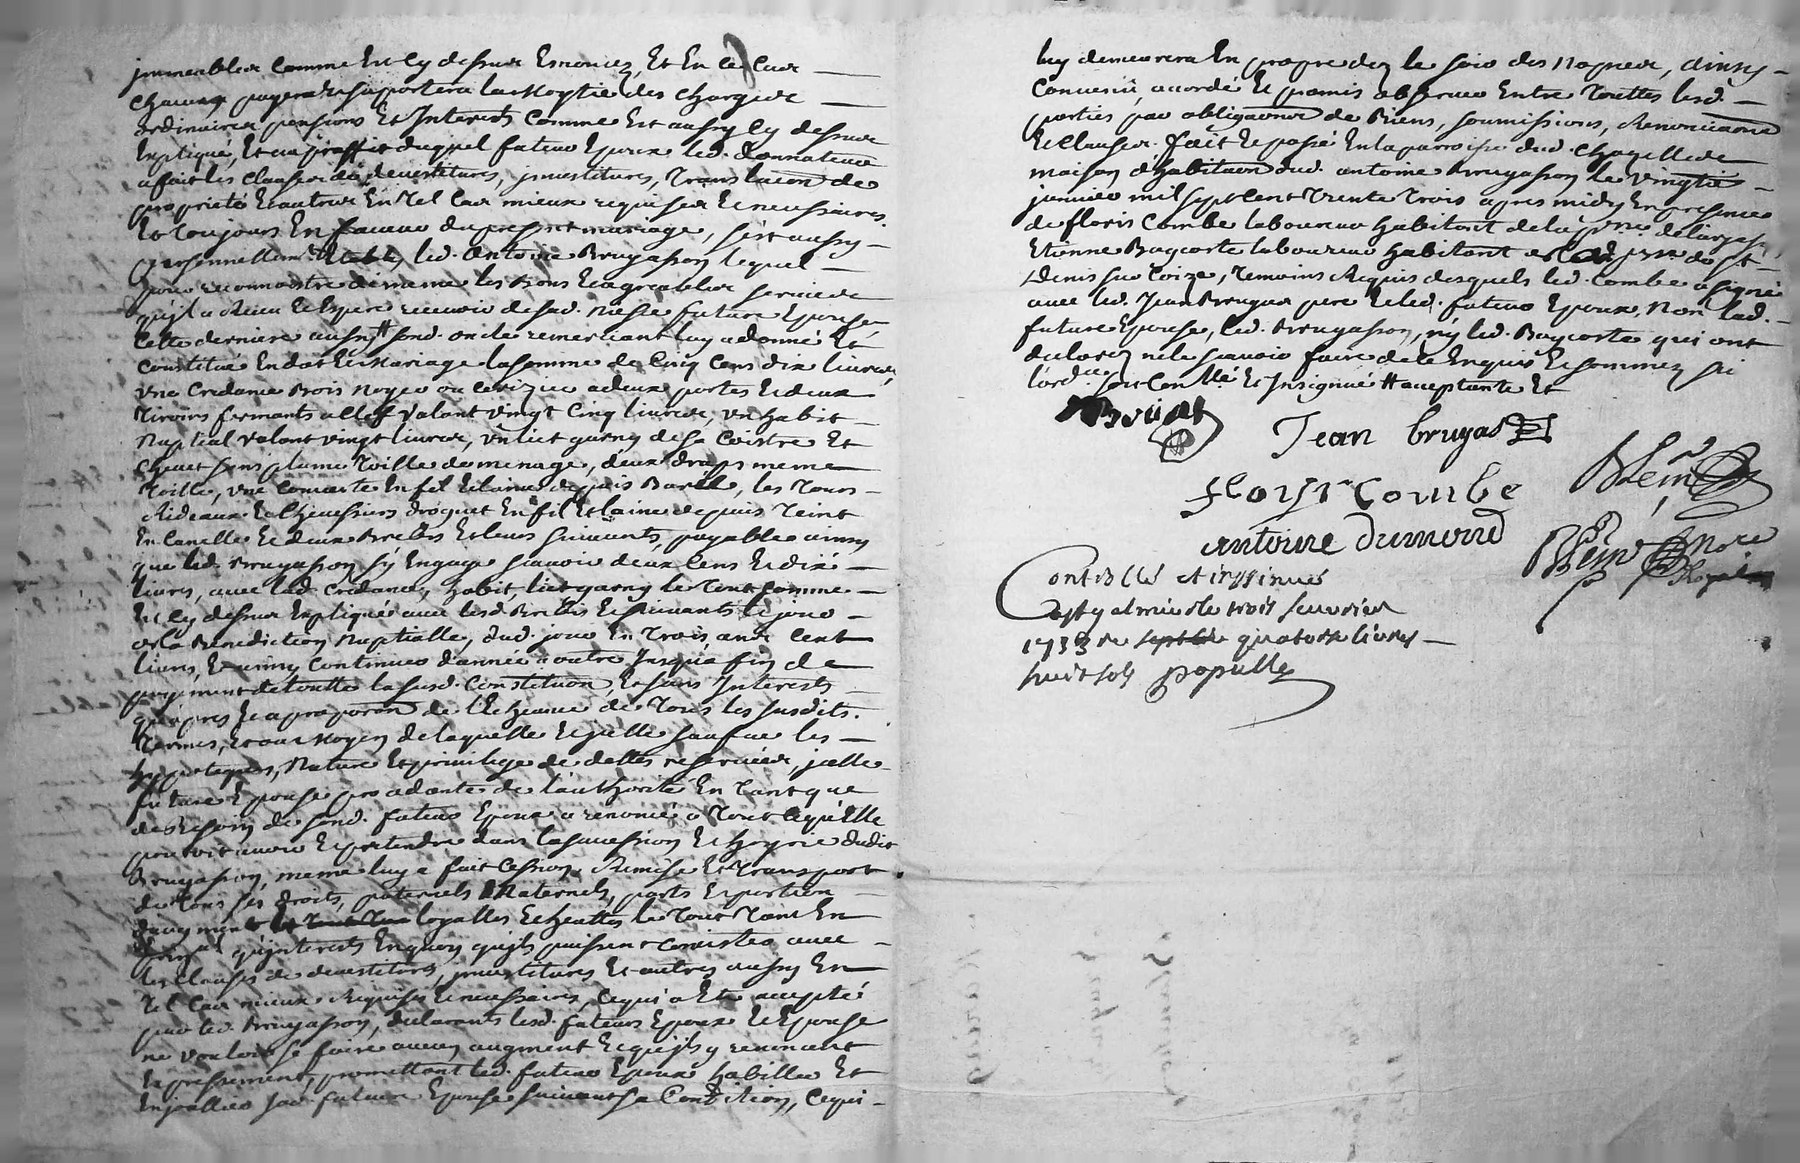 immeubles comme Est cy dessus Enoncez, Et En ce Cas
chacun payera Et suportera la moytié des charges
ordinaires pensions Et Interests comme Est aussy cy dessus
Expliqué, Et au proffit duquel futeur Epoux led. donnateur
a fait les clauses de devestitures, jnvestitures, translation de
proprieté Et autres En tel Cas mieux requises Et necessaires
Et toujours En faveur du present mariage, s'est aussy
personnellemt Etably led. antoine Bruyasson lequel
pour reconnoistre de meme les Bons Et agreables services
qu'jl a Receu Et Espere recevoir de sad. niesse future Epouse
cette derniere aussy # sond. oncle remerciant luy a donné Et
constitué En dot Et mariage la somme de Cinq Cens dix livres
une Credance Bois noyer ou cerizier a deux portes Et deux
tiroirs fermants a clef valant vingt Cinq livres, un habit
nuptial valant vingt livres, un lict garny de sa Coistre Et
chevet sans plume toille de menage, deux draps meme
toille, une Couverte En fil Et laine du puis Barèl, les tours
Rideaux Et Chevessiers droguet En fil Et laine du puis teint
En Canelle Et deux Brebis Et leurs suivants, payables ainsy
que led. Bruyasson s'y Engage scavoir deux Cens Et dix
livres, avec lad. Credance, habit, lict garny le tout comme
Est cy dessus Expliqué avec lesd. Brebis Et suivants le jour
de la Benediction Nuptialle, dud. jour En trois ans Cent
livres, Et ainsy Continuer d'année a autre Jusqu'a fin de
payement de toutte la susd. Constitution, Et sans Interests
qu'apres Et a proporon de l'Echeance de tous les susdits
termes, Et au moyen de laquelle Et qu'elle sauf sur les
hypoteques, Nature Et privilege de dettes reservées, jcelle
future Epouse procedante de l'authorité En tant que
de Besoin de sond. futeur Epoux a renoncé a tout ce qu'Elle
pouroit avoir Et pretendre dans la succession Et hoyrie dudit
Bruyasson, meme luy a fait Cession, Remise Et transport
de tous ses droits, paternels Maternels, parts Et portion
d'augment loyalles Echeuttes le tout tant En
qu'interests En quoy qu'jls puissent Consister avec
les clauses de devestitures, jnvestitures Et autres aussy En
tel Cas mieux Requises Et necessaires, Ce qui a Eté accepté
par led. Bruyasson, declarants lesd. futeurs Epoux Et Epouse
ne vouloir se faire aucun augment Et qu'jls y renoncent
Expressement, promettant led. futeur Epoux habiller Et
Enjoallier sad. future Epouse suivant sa Condition, Ce qui
luy demeurera En propre dez le soir des Nopces, ainsy
Convenu, accordé Et promis observer Entre touttes lesd.
parties par obligaons de Biens, soumissions, Renonciaons
Et Clauses. fait Et passé En la parroisse dud. Chazelles
maison d'habitaon dud. antoine Bruyasson le vingtie
janvier mil sept Cent trente trois apres midy En presence
de floris Combe laboureur habitant de la psse de Larajasse
Etienne Baycoste laboureur habitant de lad. psse de St
Denis sur Coize, temoins Requis desquels led. Combe a signé
avec led. Jean Bruyas pere Et led. futeur Epoux, Non lad.
future Epouse, led. Bruyasson, ny led. Baycoste qui ont
declarez ne le scavoir faire de ce Enquis Et sommez sui
l'ordce soit Conllé Et Insignué # acceptante Et
Jean bruyas
floris Combe
antoine dumond
Controllé et inssinué
a St galmier le trois fevrier
1733 Re sept li quatorze livres
huit sols populle